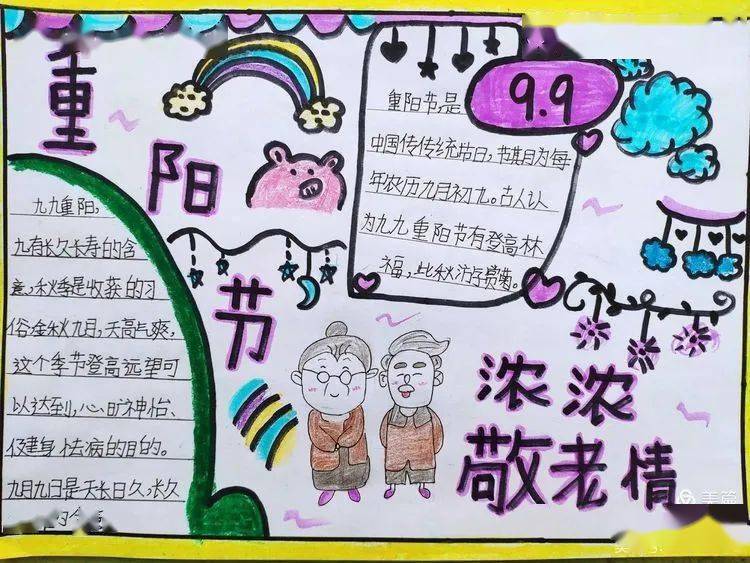 重阳节
九九重阳,
九有长久长寿的含
意,秋季是收获的习
俗金秋九月,天高气爽,
这个季节登高远望可
以达到心旷神怡、
健身祛病的目的。
九月九日是天长日久,长久
9.9
重阳节是
中国传传统节日,节期为每
年农历九月初九。古人认
为九九重阳节有登高
福,此秋赏菊。
浓浓
敬老情
美篇